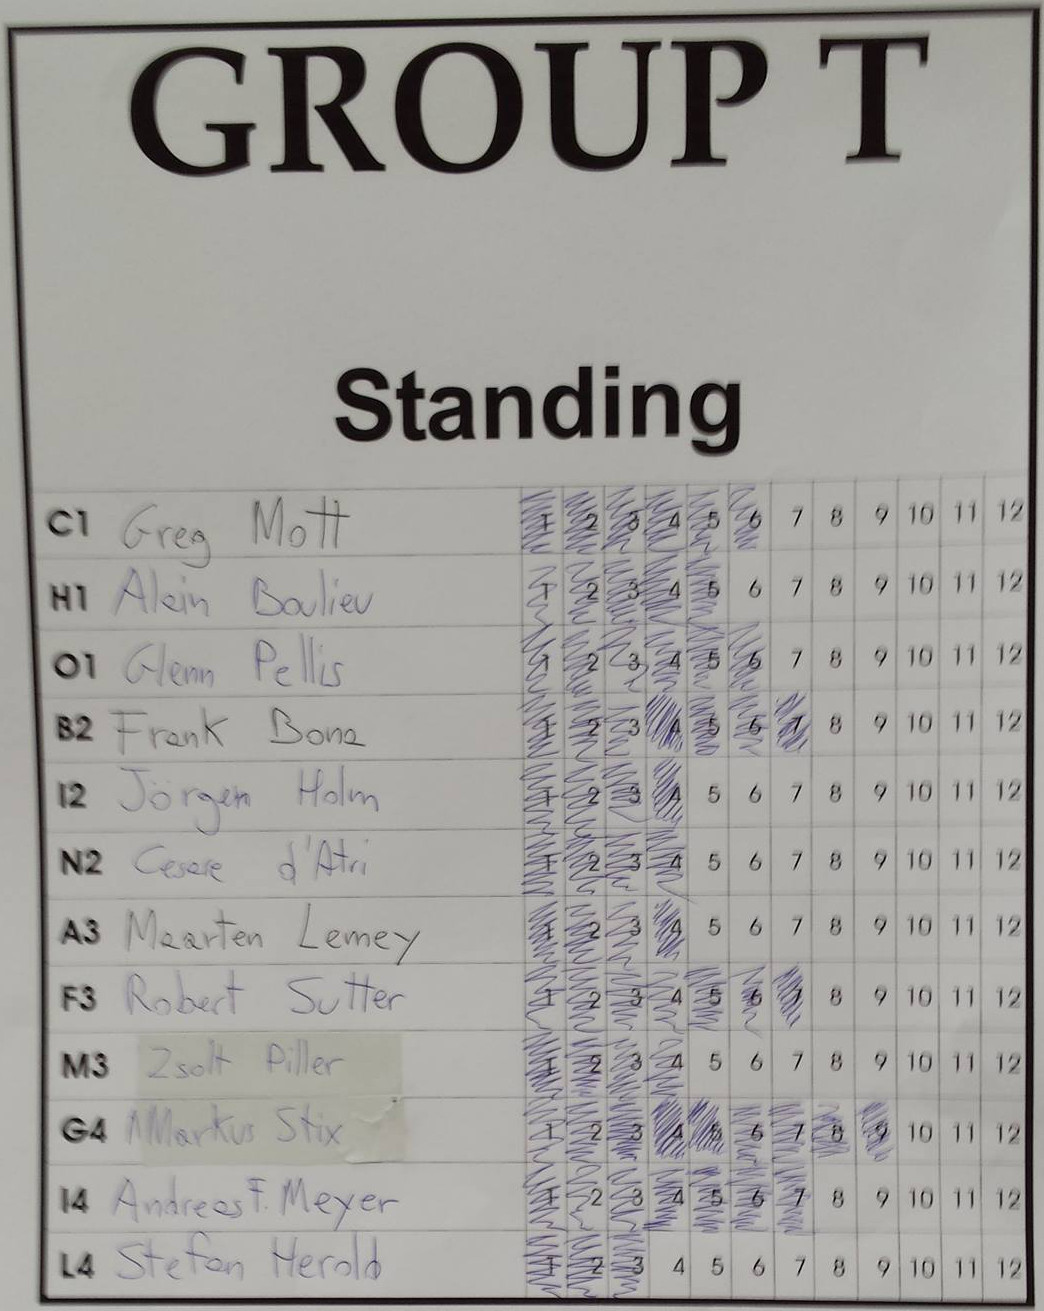 GROUP T
Standing
C1 Greg Mott 1 2 3 4 5 6 7 8 9 10 11 12
H1 Alain Boulieu 1 2 3 4 5 6 7 8 9 10 11 12
O1 Glenn Pellis 1 2 3 4 5 6 7 8 9 10 11 12
B2 Frank Bona 1 2 3 4 5 6 7 8 9 10 11 12
I2 Jörgen Holm 1 2 3 4 5 6 7 8 9 10 11 12
N2 Cesare d'Atri 1 2 3 4 5 6 7 8 9 10 11 12
A3 Maarten Lemey 1 2 3 4 5 6 7 8 9 10 11 12
F3 Robert Sutter 1 2 3 4 5 6 7 8 9 10 11 12
M3 Zsolt Piller 1 2 3 4 5 6 7 8 9 10 11 12
G4 Markus Stix 1 2 3 4 5 6 7 8 9 10 11 12
I4 Andreas F. Meyer 1 2 3 4 5 6 7 8 9 10 11 12
L4 Stefan Herold 1 2 3 4 5 6 7 8 9 10 11 12